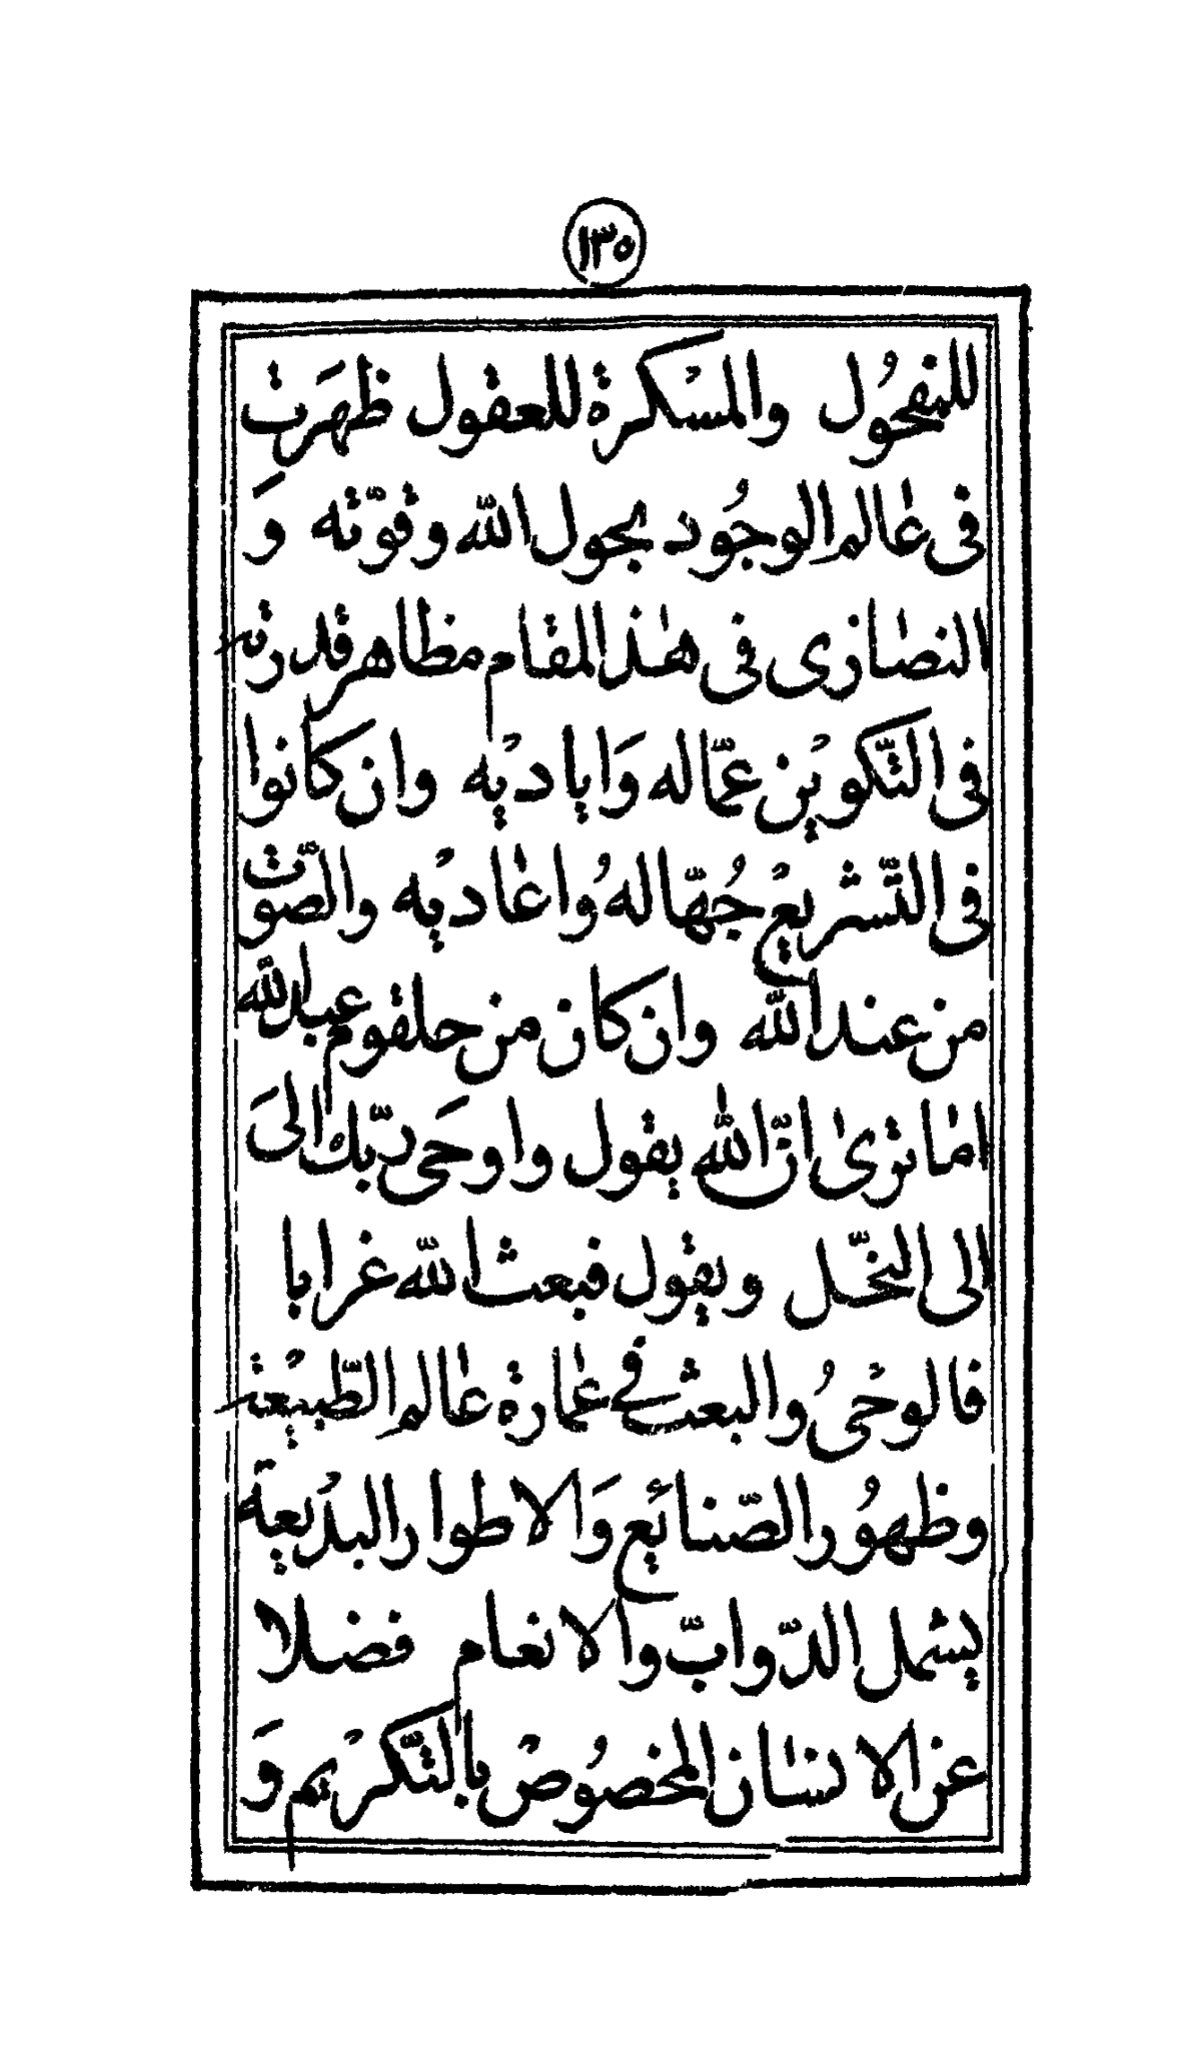 ١٣٥
للفحُول والمسْكرة للعقول ظهرَت
فى عٰالم الوجُود بحول الله وقوّته وَ
النصٰارٰى فى هٰذا المقام مظاهر قدرته
فى التّكويْن عمّاله وَاياديْه وان كانوا
فى التّشريْع جُهّاله وُاعٰاديْه والصّوت
من عند الله وان كان من حلقوم عبد الله
امٰا ترىٰ انّ الله يقول واوحَى ربّك الى
الى النخّل ويقول فبعث الله غرابا
فالوحْىُ والبعث فى عمٰارة عٰالم الطّبيْعة
وظهوُر الصّنائع وَالاطوار البديْعة
يشمل الدّوابّ والانعام فضلا
عن الانسٰان المخصُوصْ بالتّكريْم وَ